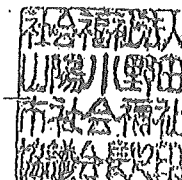 社会福祉法人
山陽小野田
市社会福祉
協議会